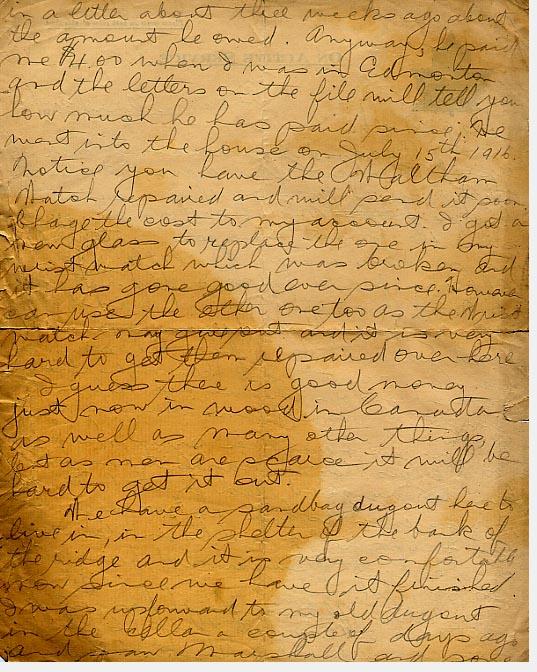 in a letter about three weeks ago about
the amount he owed. Anyway, he paid
me $4.00 when I was in Edmonton
and the letters on the file will tell you
how much he has paid since. He
went into the house on July 15th 1916.
Notice you have the Waltham
Watch repaired and will send it soon
Charge the cost to my account. I got a
new glass to replace the one in my
wrist watch which was broken and
it has gone good ever since. However
can use the other one too as the wrist
watch may give out and it is very
hard to get them repaired over here
I guess there is good money
just now in wood in Canada
as well as many other things,
but as men are scarce it will be
hard to get it cut.
We have a sandbag dugout here to
live in, in the shelter of the bank of
the ridge and it is very comfortable
now since we have it finished.
I was up forward to my old dugout
in the cellar a couple of days ago
and saw Marshall and